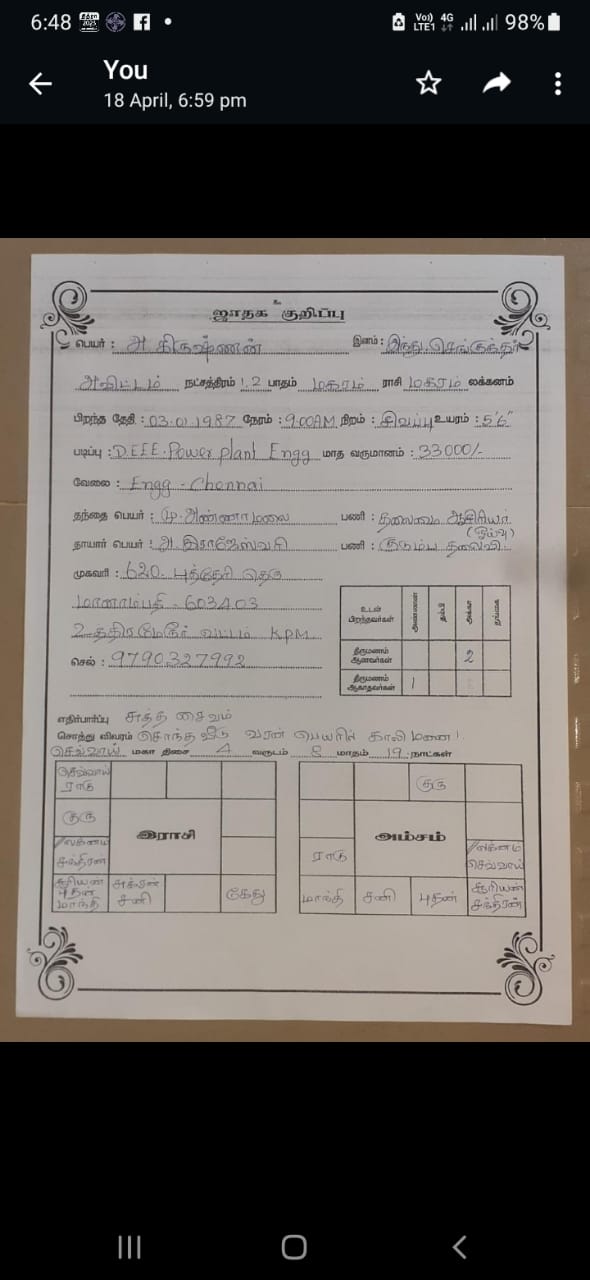 6:48 Vo) LTE1 4G 98%
You
18 April, 6:59 pm
உ
ஜாதக குறிப்பு
பெயர் : அ கிருஷ்ணன் இனம் : இந்து செங்குந்தர்
அவிட்டம் நட்சத்திரம் 1, 2 பாதம் மகரம் ராசி மகரம் லக்கனம்
பிறந்த தேதி : 03.01.1987 நேரம் : 9.00AM நிறம் : சிவப்பு உயரம் : 5'6"
படிப்பு : D.EEE. Power plant Engg மாத வருமானம் : 33000/-
வேலை : Engg - Chennai
தந்தை பெயர் : மு. அண்ணாமலை பணி : தலைமை ஆசிரியர் (ஓய்வு)
தாயார் பெயர் : அ. இராஜேஸ்வரி பணி : குடும்ப தலைவி
முகவரி : 620. புத்தேரி தெரு
மானாம்பதி - 603403
உத்திரமேரூர் வட்டம் KPM
செல் : 9790327992
உடன் பிறந்தவர்கள் அண்ணன் தம்பி அக்கா தங்கை
திருமணம் ஆனவர்கள் 2
திருமணம் ஆகாதவர்கள் 1
எதிர்பார்ப்பு சுத்த சைவம்
சொத்து விவரம் சொந்த வீடு வரன் பெயரில் காலி மனை 1
செவ்வாய் மகா திசை 4 வருடம் 8 மாதம் 19 நாட்கள்
செவ்வாய் ராகு
குரு
லக்னம் சந்திரன்
இராசி
சூரியன் புதன் மாந்தி
சுக்ரன் சனி
கேது
குரு
ராகு
அம்சம்
லக்னம் செவ்வாய்
மாந்தி
சனி
புதன்
சூரியன் சந்திரன்